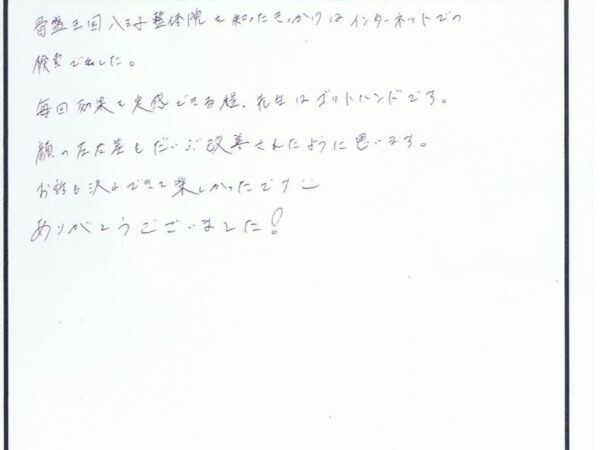 骨盤王国八王子整体院を知ったきっかけはインターネットでの
検索でした。
毎回効果を実感できる程、先生はゴットハンドです。
顔の左右差もだいぶ改善されたように思います。
お話も沢山できて楽しかったです
ありがとうございました!